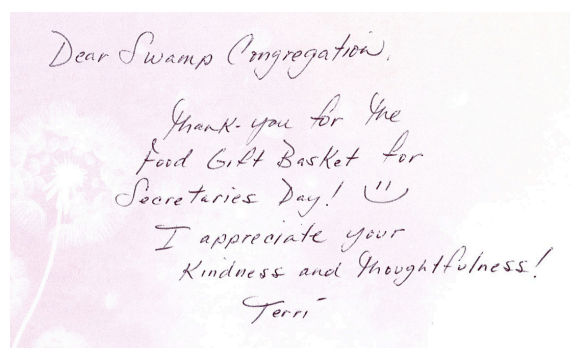 Dear Swamp Congregation,
Thank-you for the
Food Gift Basket for
Secretaries Day!
I appreciate your
Kindness and thoughtfulness!
Terri